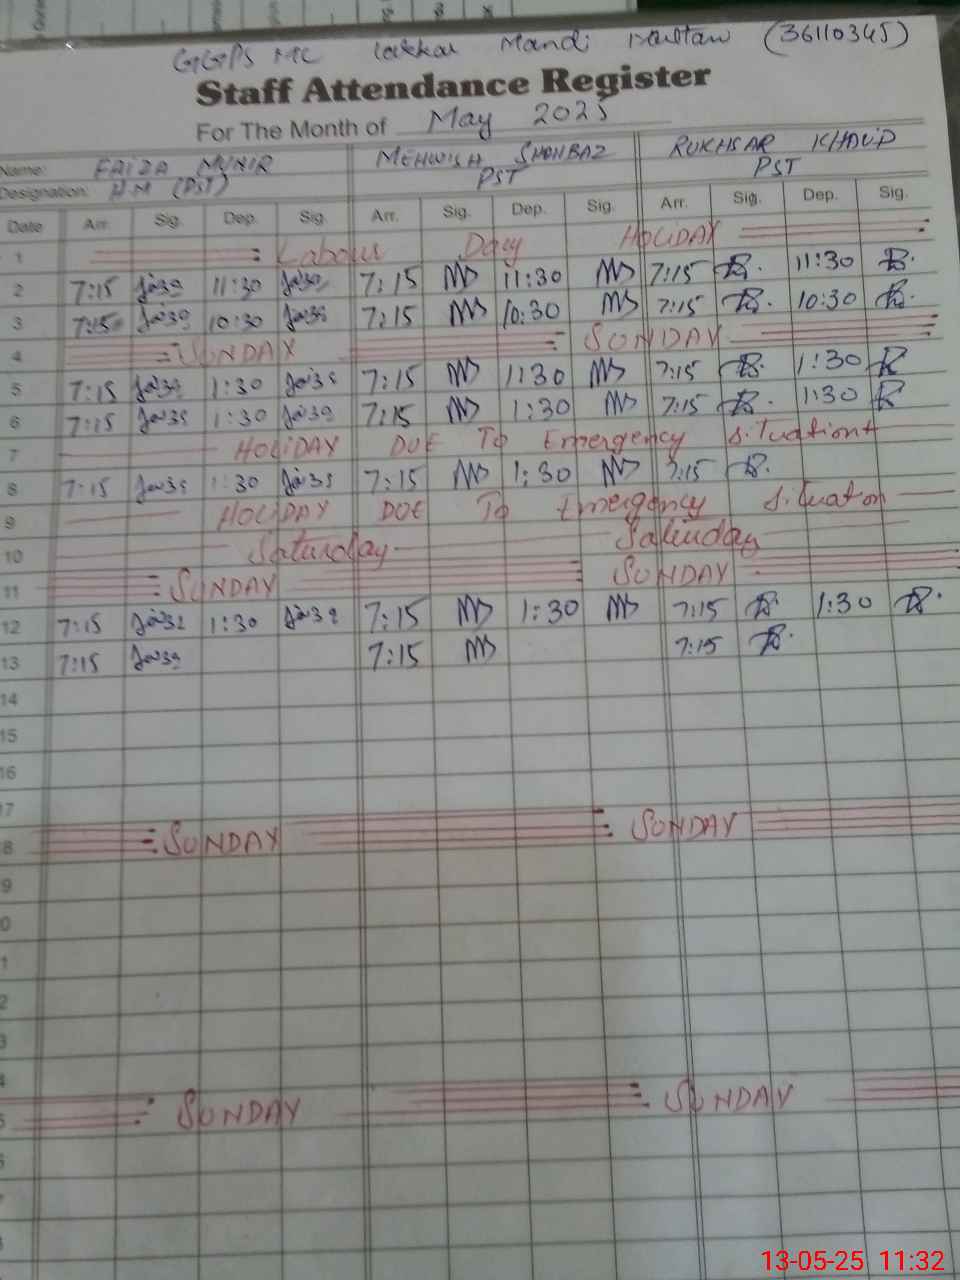 GGPS MC Lakkar Mandi Multan (36110345)
Staff Attendance Register
For The Month of May 2025
Name: FAIZA MUNIR MEHWISH SHAHBAZ RUKHSAR KHALID
Designation: H.M (PST) PST PST
Date Arr. Sig. Dep. Sig. Arr. Sig. Dep. Sig. Arr. Sig. Dep. Sig.
1 Labour Day HOLIDAY
2 7:15 11:30 7:15 11:30 7:15 11:30
3 7:15 10:30 7:15 10:30 7:15 10:30
4 SUNDAY SUNDAY
5 7:15 1:30 7:15 1:30 7:15 1:30
6 7:15 1:30 7:15 1:30 7:15 1:30
7 HOLIDAY DUE To Emergency Situation
8 7:15 1:30 7:15 1:30 7:15
9 HOLIDAY DUE To Emergency Situation
10 Saturday Saturday
11 SUNDAY SUNDAY
12 7:15 1:30 7:15 1:30 7:15 1:30
13 7:15 7:15 7:15
14
15
16
7
8 SUNDAY SUNDAY
9
0
1
2
3
4
5 SUNDAY SUNDAY
13-05-25 11:32